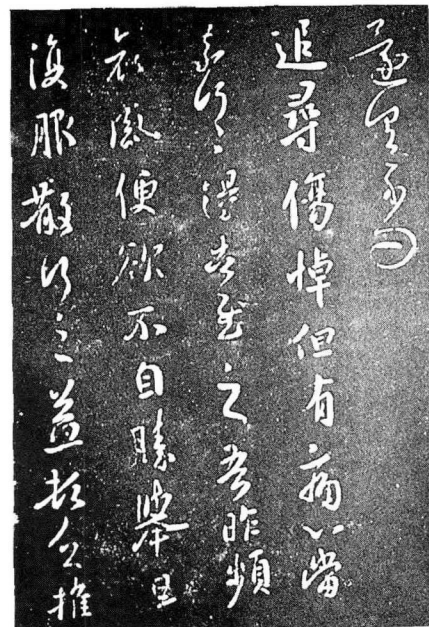 追尋傷悼但有痛心當
奈何〻得告慰之吾昨頻
哀感便欲不自勝舉旦
復服散行之益頓乏推